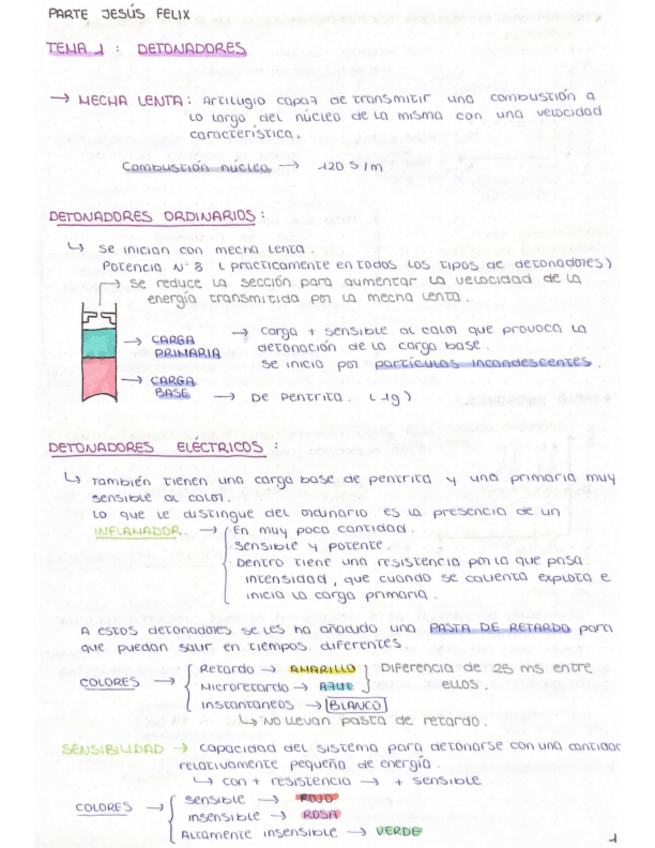 PARTE JESÚS FELIX
TEMA 1 : DETONADORES
→ MECHA LENTA : Artilugio capaz de transmitir una combustión a
lo largo del núcleo de la misma con una velocidad
característica.
Combustión núcleo → 120 s/m
DETONADORES ORDINARIOS :
↳ se inician con mecha lenta.
Potencia Nº 8 ( practicamente en todos los tipos de detonadores)
→ se reduce la sección para aumentar la velocidad de la
energía transmitida por la mecha lenta.
→ CARGA PRIMARIA → carga + sensible al calor que provoca la
detonación de la carga base.
se inicia por partículas incandescentes.
→ CARGA BASE → De pentrita. ( 1g )
DETONADORES ELÉCTRICOS :
↳ También tienen una carga base de pentrita y una primaria muy
sensible al calor.
Lo que le distingue del ordinario es la presencia de un
INFLAMADOR. → En muy poca cantidad.
Sensible y potente.
Dentro tiene una resistencia por la que pasa
intensidad, que cuando se calienta explota e
inicia la carga primaria.
A estos detonadores se les ha añadido una PASTA DE RETARDO para
que puedan salir en tiempos diferentes.
COLORES → Retardo → AMARILLO Diferencia de 25 ms entre
Microretardo → AZUL ellos.
instantáneos → BLANCO
↳ NO llevan pasta de retardo.
SENSIBILIDAD → capacidad del sistema para detonarse con una cantidad
relativamente pequeña de energía.
↳ con + resistencia → + sensible
COLORES → sensible → ROJO
insensible → ROSA
Altamente insensible → VERDE
1